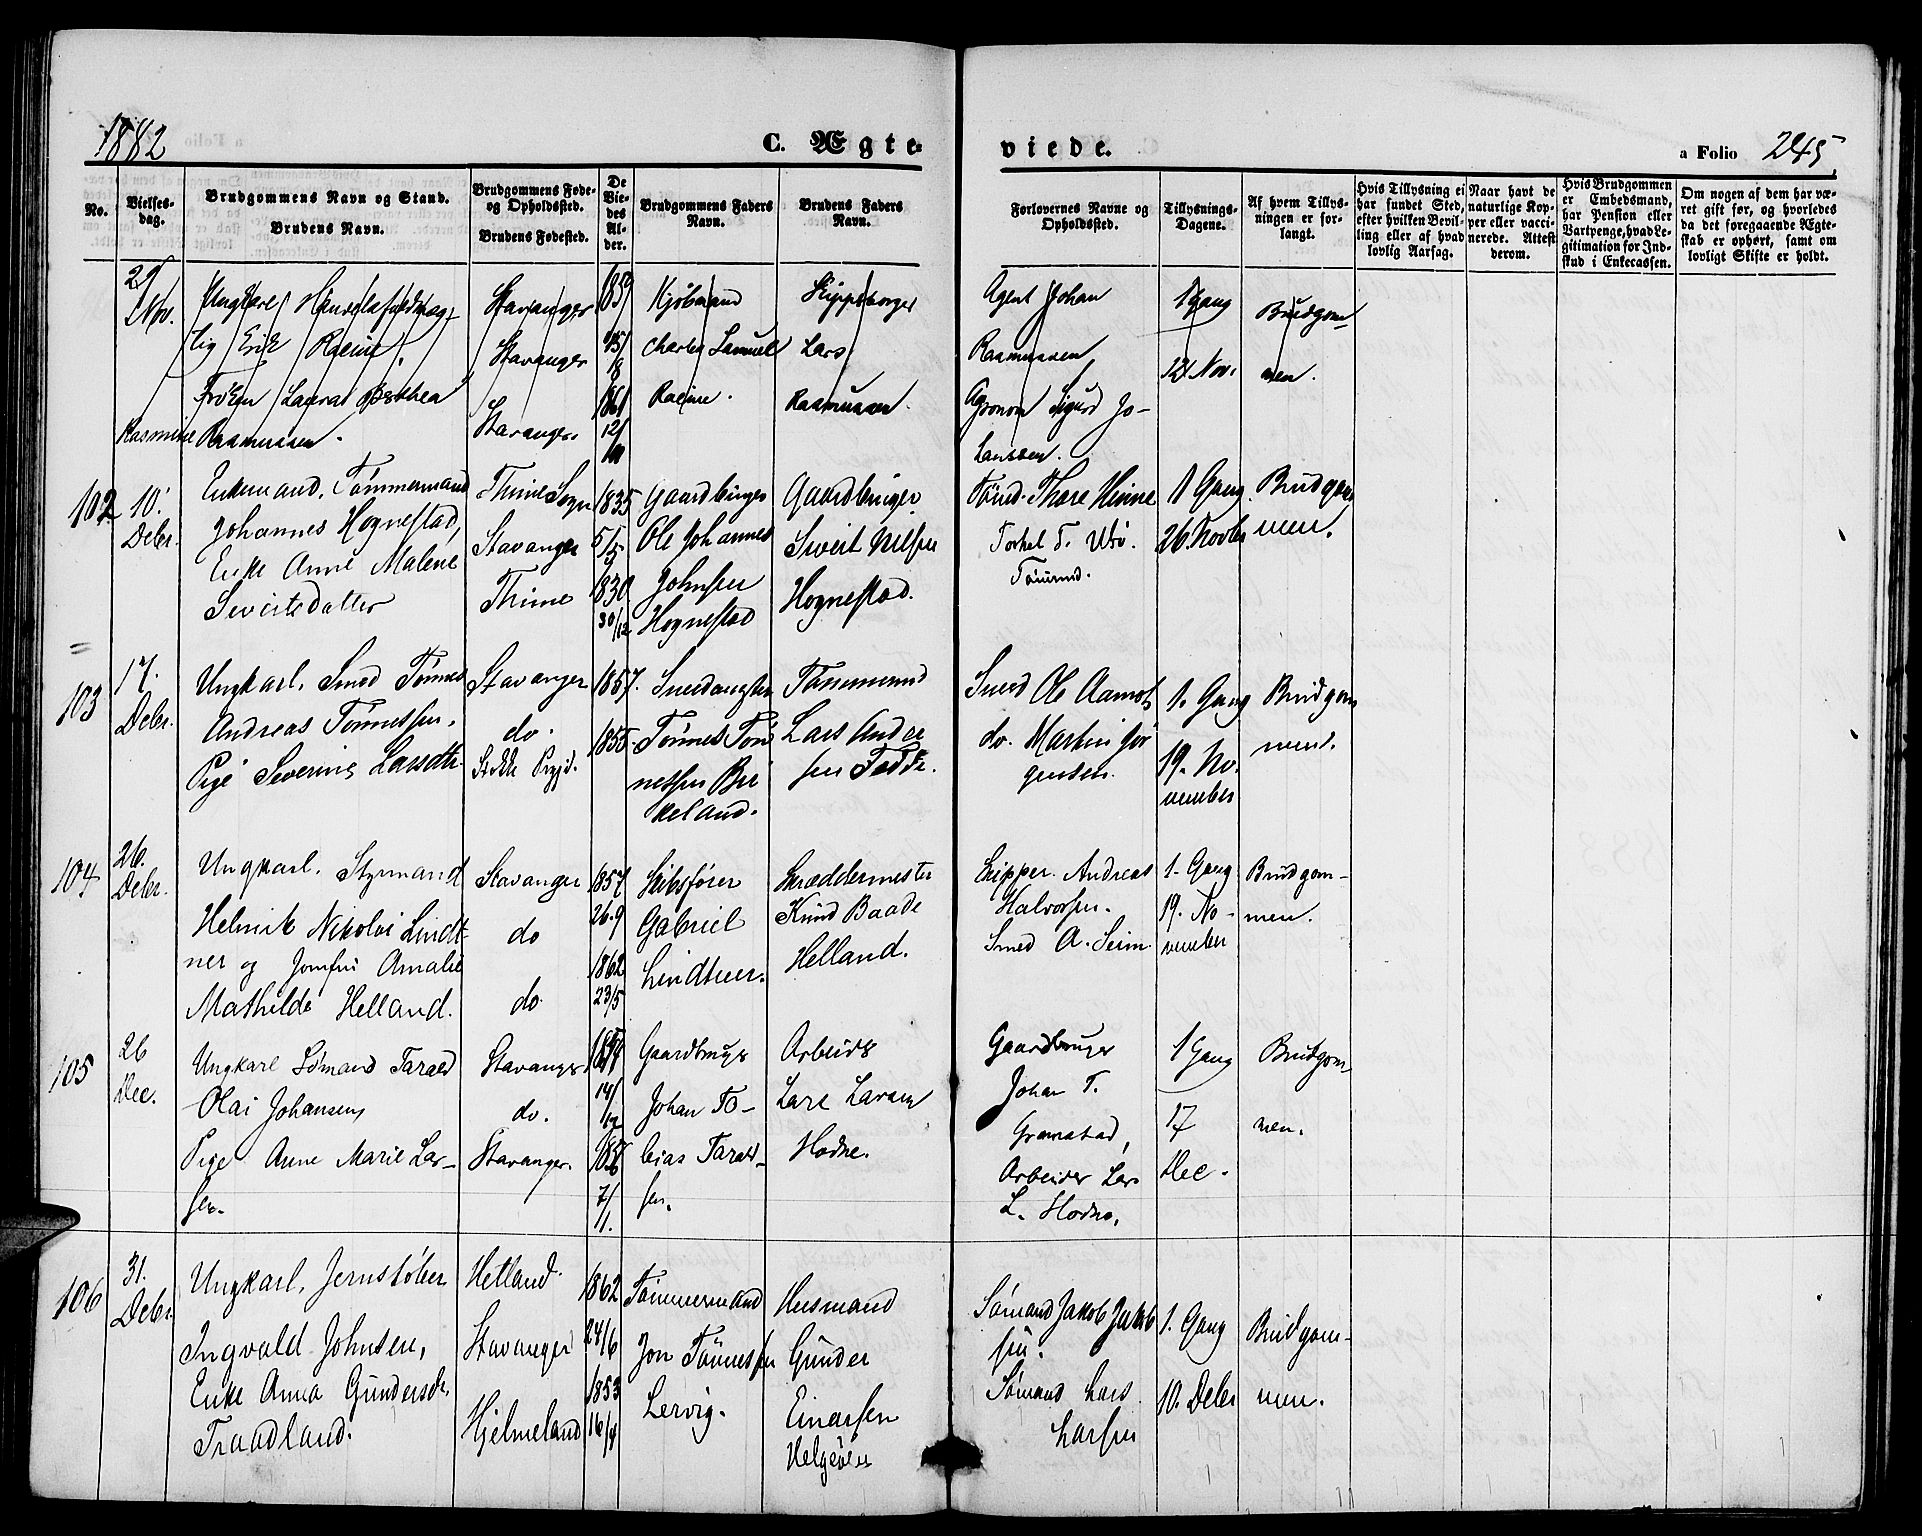 1882
C. Ægte-
viede.
a Folio 245
No.
Vielses-
dag.
Brudgommens Navn og Stand.
Brudens Navn.
Brudgommens Føde-
og Opholdssted.
Brudens Fødested.
De
Vie-
des
Al-
der.
Brudgommens Faders
Navn.
Brudens Faders
Navn.
Forlovernes Navne og
Opholdssted.
Tillysnings-
Dagene.
Af hvem Tillys-
ningen er for-
langt.
Hvis Tillysning ei
har fundet Sted,
efter hvilken Bevil-
ling eller af hvad
lovlig Aarsag.
Naar havt de
naturlige Kop-
per eller vacci-
nerede. Attest
derom.
Hvis Brudgommen
er Embedsmand,
har Pension eller
Vartpenge, hvad Le-
gitimation for Ind-
skud i Enkecassen.
Om nogen af dem har væ-
ret gift før, og hvorledes
da det foregaaende Ægte-
skab er ophørt, samt om
lovligt Skifte er holdt.
Nov.
Ungkarl
Erik Racine,
Frøken Laura Berthea
Rasmine Rasmussen.
Stavanger
Stavanger
Stavanger.
1859
1861
12/
Kjøbmand
Charles Samuel
Racine.
Skippsborger
Lars
Rasmussen.
Agent Johan
Rasmussen,
Agronom Sigurd Jo-
hanssen.
1 Gang
12 Nov.
Brudgom-
men.
102
10.
Decbr.
Enkemand, Tømmermand
Johannes Hognestad,
Enke Anne Malene
Sivertsdatter
Thime Sogn
Stavanger
Thime
1835
5/5
1830
30/12
Gaardbruger
Ole Johannes
Johnsen
Hognestad
Gaardbruger
Sivert Nilsen
Hognestad.
Tømd. Thore Hinne
Torkel T.
Tømmd.
1 Gang.
26. Novbr
Brudgom
men.
103
17.
Decbr.
Ungkarl, Smed Tønnes
Andreas Tønnessen.
Pige Severine Larsdtr.
Stavanger
do.
1857.
1855
Tønnes Tøn
nessen Bir
keland.
Tømmermd
Lars Ander
sen Fedde.
Smed Ole Aamot
do. Martin Jør
gensen.
1. Gang
19. No.
vember
Brudgom
mend.
104
26.
Decbr.
Ungkarl. Styrmand
Helmik Nikolai Lindt-
ner og Jomfru Amalie
Mathilde Helland.
Stavanger
do
do
1857
26-9
1862
23/5
Skibsfører
Gabriel
Lindtner.
Skræddermester
Knud Baade
Helland.
Skipper. Andreas
Halvorsen.
Smed A. Seim
1. Gang
19. No-
vember
Brudgom-
men.
105
26
Dec.
Ungkarl Sømand Tarald
Olai Johansen,
Pige Anne Marie Lar-
sen.
Stavanger
do.
Stavanger.
14/
12
7/
11.
Gaardbruger
Johan To-
bias Tarald-
sen.
Arbeider
Lars Larsen
Hodne.
Gaardbruger
Johan T.
Gramstad,
Arbeider Lars
L. Hodne.
1 Gang
17
Dec.
Brudgom-
men.
106
31.
Decbr.
Ungkarl, Jernstøber
Ingvald Johnsen,
Enke Anna Gundersdr.
Traadland.
Hetland.
Stavanger
Hjelmeland
1862
24/6
1853
16/4
Tømmermand
Jon Tønnessen
Lervig.
Husmand
Gunder
Einarsen
Helgøen
Sømand Jakob Jakob
sen.
Sømand Lars
Larsen
1. Gang
10. Decbr
Brudgom-
men.